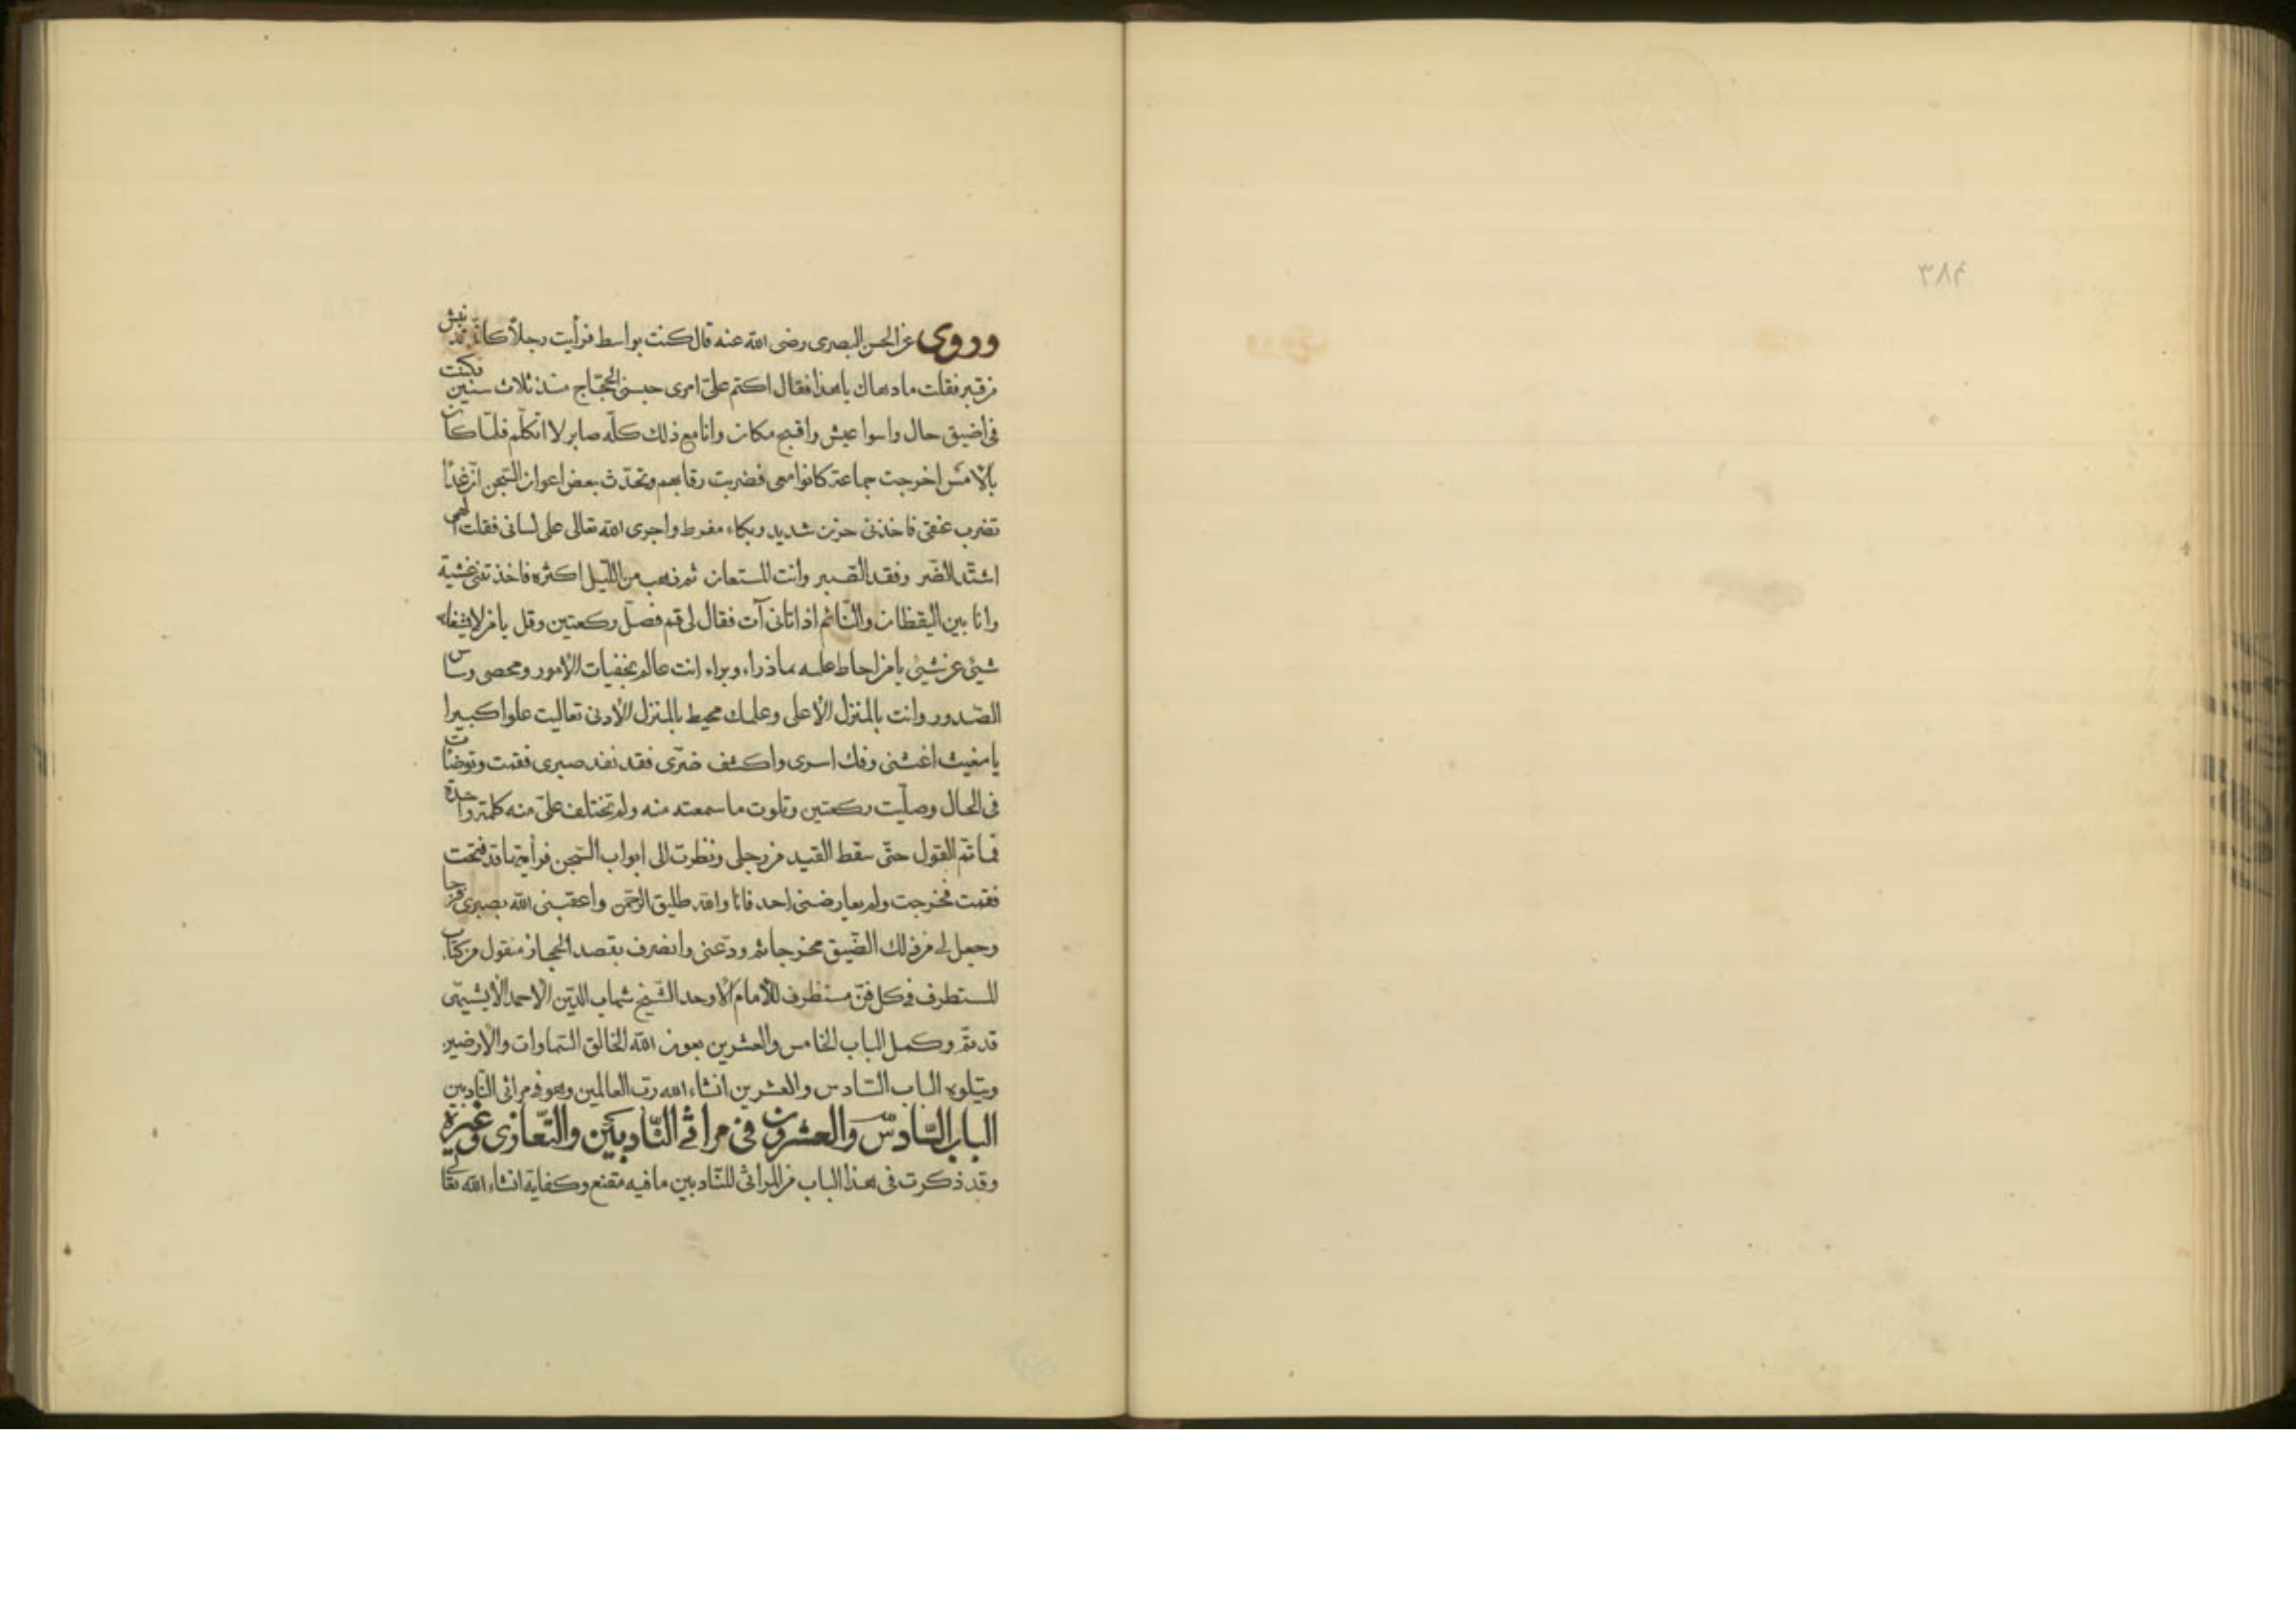 ٣٨٤
وروى عن الحسن البصرى رضى الله عنه قال كنت بواسط فرأيت رجلاً كانّه قد نبش
من قبر فقلت ما دهاك يا هذا فقال اكتم علىّ امرى حبسنى الحجّاج منذ ثلاث سنين فكنت
فى اضيق حال واسوا عيش واقبح مكان وانا مع ذلك كلّه صابر لا اتكلّم فلمّا كان
بالامس اخرجت جماعة كانوا معى فضربت رقابهم وتحدّث بعض اعوان السّجن انّ غدًا
تضرب عنقى فاخذنى حزن شديد وبكاء مفرط واجرى الله تعالى على لسانى فقلت الهى
اشتدّ الضّر وفقد الصّبر وانت المستعان ثم ذهب من اللّيل اكثره فاخذتنى غشية
وانا بين اليقظان والنّائم اذ اتانى آت فقال لى قم فصلّ ركعتين وقل يا من لا يشغله
شيئ عن شيئ يا من احاط علمه بما ذراء وبراء انت عالم بخفيات الأمور ومحصى وساس
الصّدور وانت بالمنزل الأعلى وعلمك محيط بالمنزل الأدنى تعاليت علوا كبيرا
يا مغيث اغثنى وفك اسرى واكشف ضرّى فقد نفد صبرى فقمت وتوضات
فى الحال وصلّيت ركعتين وتلوت ما سمعته منه ولم تختلف علىّ منه كلمة واحدة
فما تم القول حتّى سقط القيد من رجلى ونظرت الى ابواب السّجن فرأيتها قد فتحت
فقمت فخرجت ولم يعارضنى احد فانا والله طليق الرّحمن واعقبنى الله بصبرى فرجا
وجعل لى من ذلك الضّيق مخرجا ثم ودّعنى وانصرف بقصد الحجاز منقول من كتاب
المستطرف فى كل فنّ مستظرف للأمام الاوحد الشّيخ شهاب الدّين الاحمد الأبشيهى
قد تمّ وكمل الباب الخامس والعشرين بعون الله الخالق السّماوات والارضين
ويتلوه الباب السّادس والعشرين انشاء الله ربّ العالمين وهو فى مراثى النّادبين
الباب السّادس والعشرون فى مراثى النّادبين والتّعازى وغيره
وقد ذكرت فى هذا الباب من المراثى للنّادبين ما فيه مقنع وكفاية انشاء الله تعالى